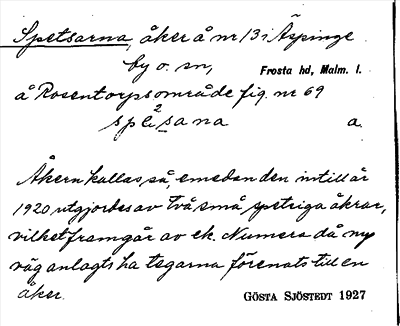 Spetsarna, åker å nr 13 i Äspinge
by o. sn, Frosta hd, Malm. l.
å Rosentorpsområde fig. nr 69
a.
Åkern kallas så, emedan den intill år
1920 utgjordes av två små spetsiga åkrar,
vilket framgår av ek. Numera då ny
väg anlagts ha tegarna förenats till en
åker. GÖSTA SJÖSTEDT 1927